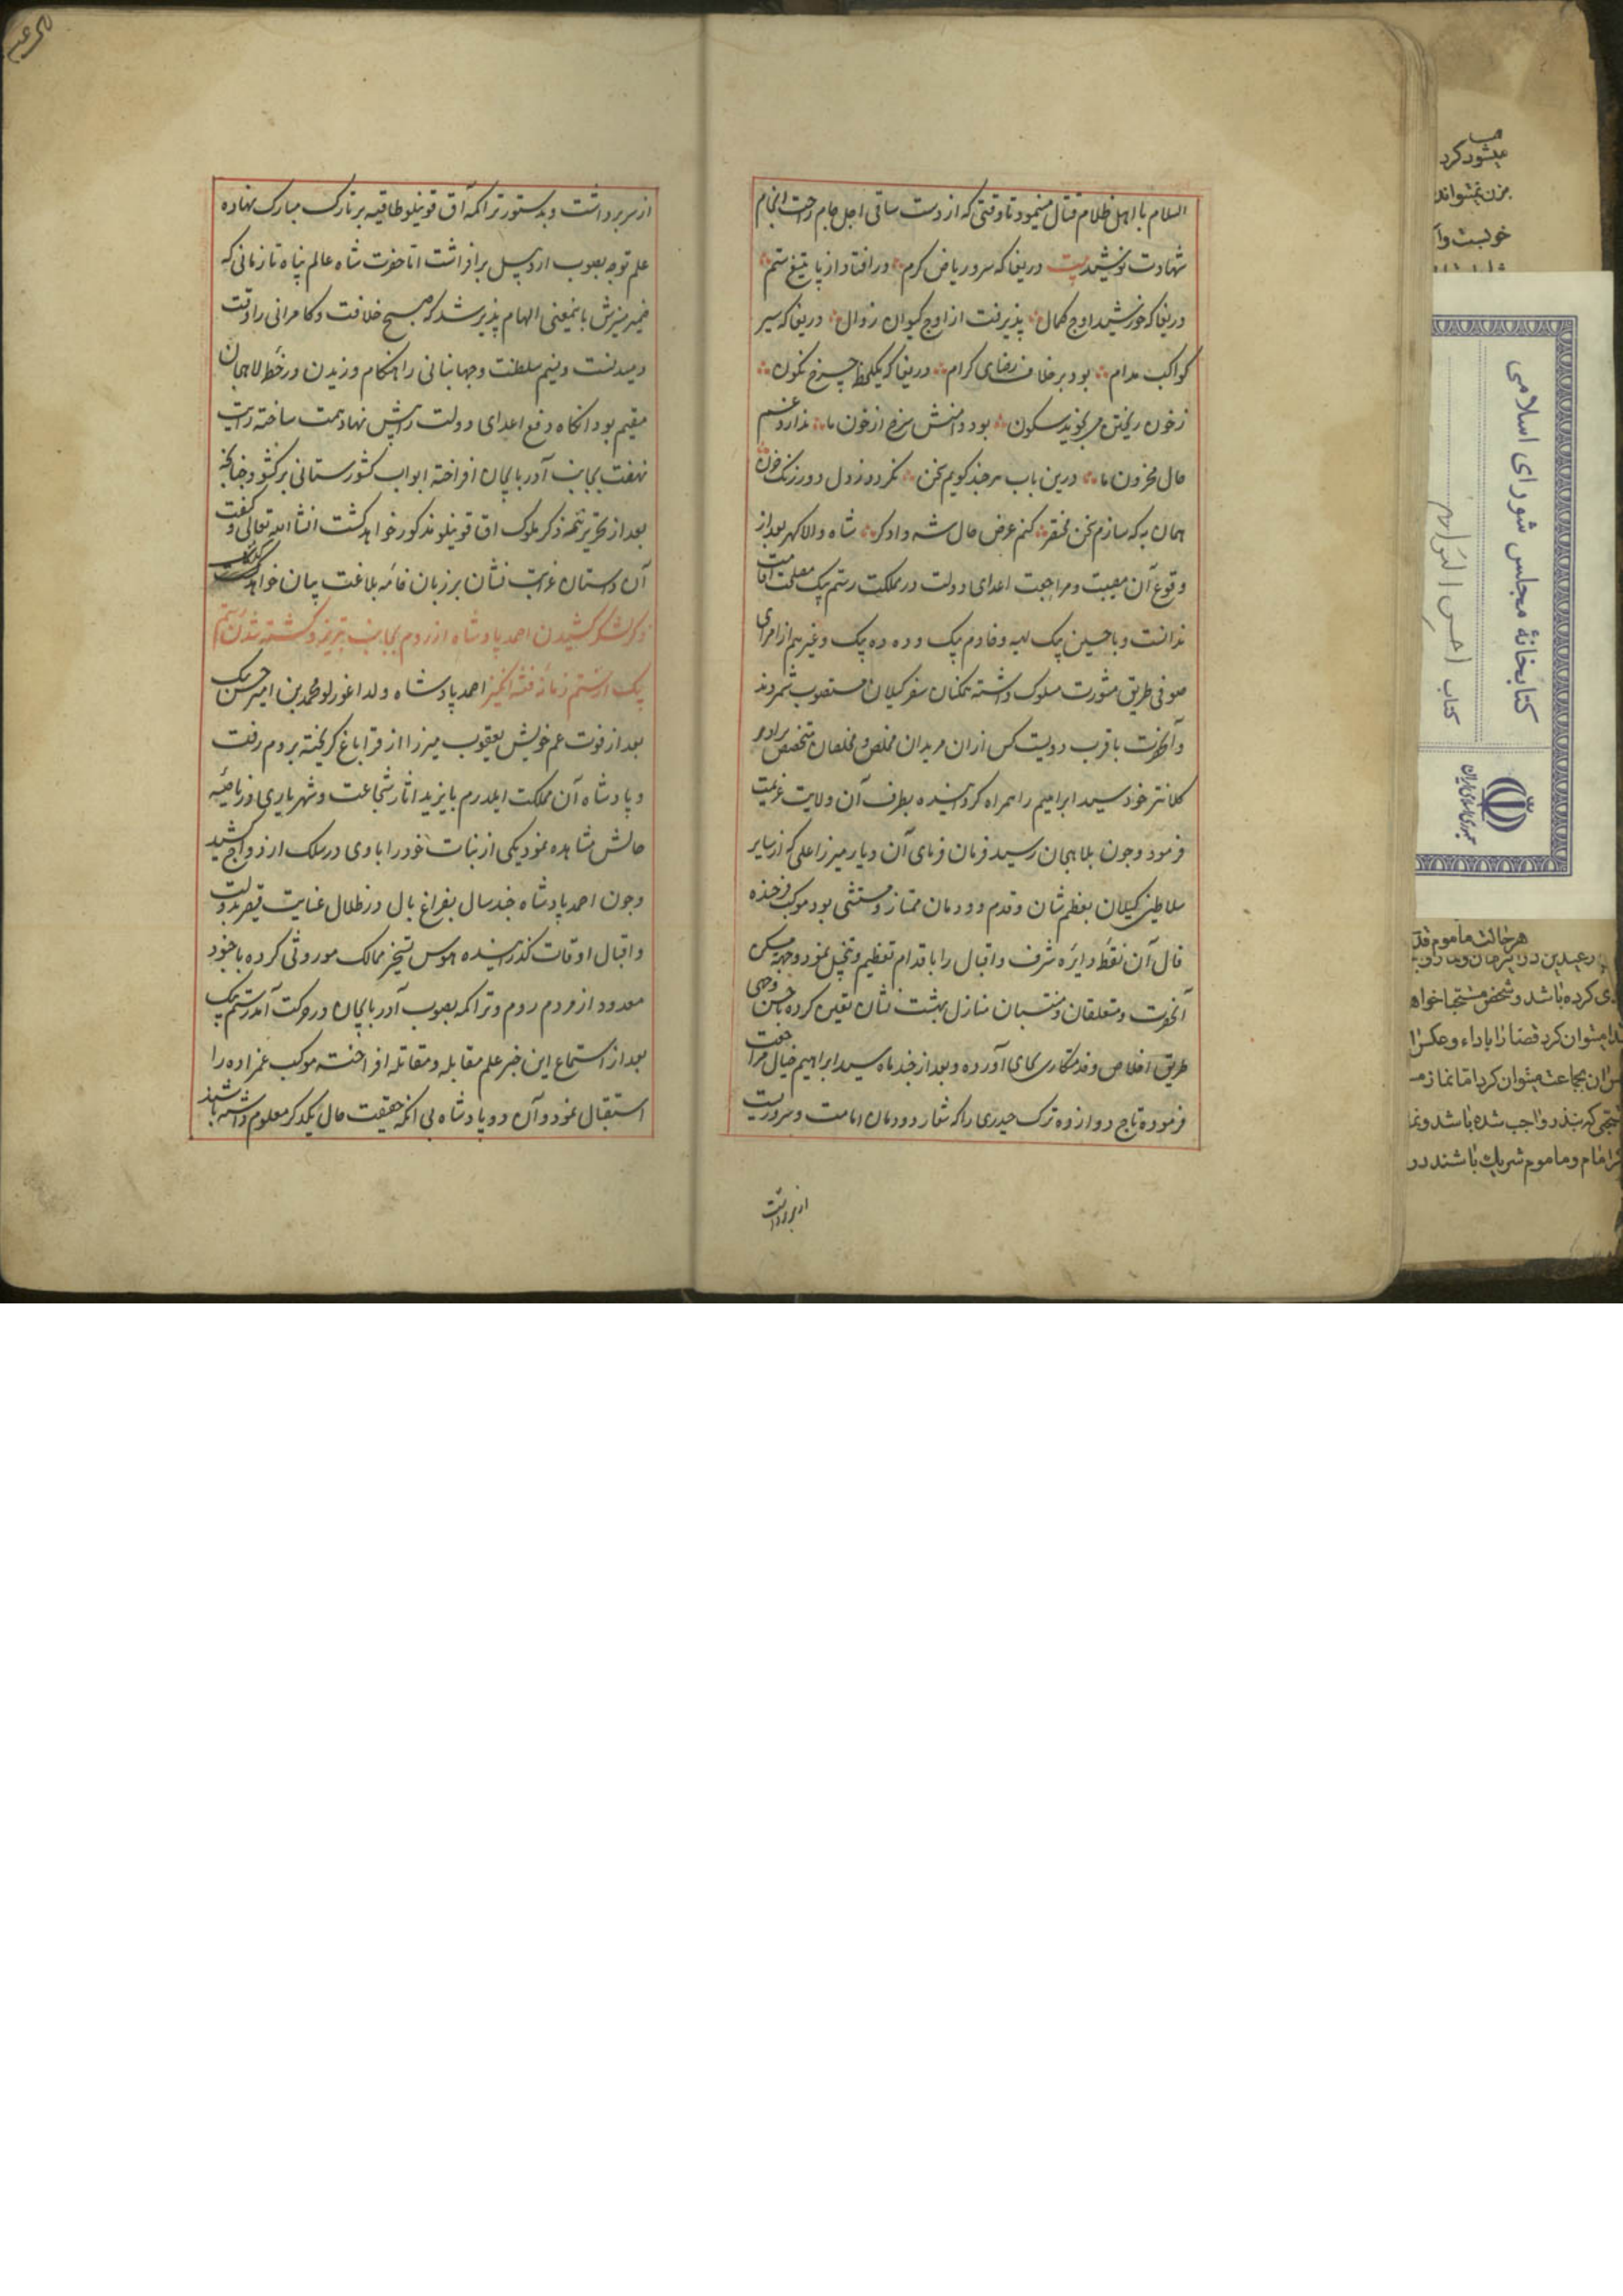 السلام با اهل ظلام قتال مینمود تا وقتی که از دست ساقی اجل جام راحت انجام
شهادت نوشید بیت دریغا که سرو ریاض کرم در افتاد از پا بتیغ ستم
دریغا که خورشید اوج کمال پذیرفت از اوج کیوان زوال دریغا که سیر
کواکب مدام بود بر خلاف رضای کرام دریغا که یکلحظه چرخ نگون
ز خون ریختن می نجوید سکون بود دامنش سرخ از خون ما ندارد غم
حال محزون ما درین باب هر چند کویم سخن نکردد ز دل دور زنک حزن
همان به که سازم سخن مختصر کنم عرض حال شه دادکر شاه والاکهر بعد از
وقوع آن مصیبت و مراجعت اعدای دولت در مملکت رستم بیک مصلحت اقامت
ندانست و با حسین بیک لله و خادم بیک و ده ده بیک و غیرهم از امرای
صوفی طریق مشورت مسلوک داشته همکنان سفر کیلان مستصوب شمردند
و آنحضرت با قرب دویست کس از ان مریدان مخلص و مخلصان متخصص برادر
کلانتر خود سید ابراهیم را همراه کردانیده بطرف آن ولایت عزیمت
فرمود و چون بلاهجان رسید فرمان فرمای آن دیار میرزا علی که از سایر
سلاطین کیلان بعظم شان و قدم دودمان ممتاز و مستثنی بود موکب فرخنده
فال آن نقطه دایره شرف و اقبال را باقدام تعظیم و تبجیل نمود و جهة مسکن
آنحضرت و متعلقان و منتسبان منازل بهشت نشان تعین کرده باحسن وجهی
طریق اخلاص و خدمتکاری بجای آورده و بعد از چند ماه سید ابراهیم خیال مراجعت
فرموده تاج دوازده ترک حیدری را که شعار دودمان امامت و سروریست
از سر برداشت
از سر برداشت و بدستور تراکمه آق قوینلو طاقیه بر تارک مبارک نهاده
علم توجه بصوب اردبیل برافراشت اما حضرت شاه عالم پناه تا زمانی که
ضمیر منیرش باینمعنی الهام پذیر شد که صبح خلافت و کامرانی را وقت
دمیدنست و نسیم سلطنت و جهانبانی را هنکام وزیدن در خطه لاهجان
مقیم بود انکاه دفع اعدای دولت را پیش نهاد همت ساخته رایت
نهضت بجانب آذربایجان افراخته ابواب کشورستانی برکشود چنانچه
بعد از تحریر تتمه ذکر ملوک اق قوینلو مذکور خواهد کشت انشاء الله تعالی و کیفیت
آن داستان غرابت نشان بر زبان خامه بلاغت بیان خواهد کذشت
ذکر لشکر کشیدن احمد پادشاه از روم بجانب تبریز و کشته شدن رستم
بیک از ستم زمانه فتنه انکیز احمد پادشاه ولد اغورلو محمد بن امیر حسن بیک
بعد از فوت عم خویش یعقوب میرزا از قراباغ کریخته بروم رفت
و پادشاه آن مملکت ایلدرم بایزید اثار شجاعت و شهریاری در ناصیه
حالش مشاهده نمود یکی از بنات خود را با وی در سلک ازدواج کشید
و چون احمد پادشاه چند سال بفراغ بال در ظلال عنایت قیصر بدولت
و اقبال اوقات کذرانیده هوس تسخیر ممالک موروثی کرده با جنود
معدود از مردم روم و تراکمه بصوب آذربایجان در حرکت آمد رستم بیک
بعد از استماع این خبر علم مقابله و مقاتله افراخت موکب عمزاده را
استقبال نمود و آن دو پادشاه بی انکه حقیقت حال یکدکر معلوم داشته باشند
کتابخانهٔ مجلس شورای اسلامی
کتاب احسن التواریخ
جمهوری اسلامی ایران
میشود کرد
هر حالت ماموم
کرده باشد و شخص
میتوان کرد قضا را باداء و عکس
بجماعت میتوان کرد اما نماز
که بنذر واجب شده باشد
امام و ماموم شریک باشند در